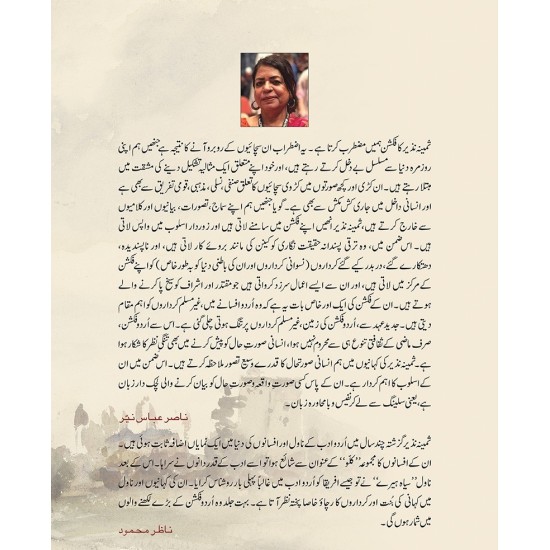 ثمینہ نذیر کا فکشن ہمیں مضطرب کرتا ہے۔ یہ اضطراب ان سچائیوں کے روبرو آنے کا نتیجہ ہے جنھیں ہم اپنی
روزمرہ دنیا سے مسلسل بے دخل کرتے رہتے ہیں، اور خود اپنے متعلق ایک مثالیہ تشکیل دینے کی مشقت میں
مبتلا رہتے ہیں۔ ان کڑی اور کچھ صورتوں میں کڑوی سچائیوں کا تعلق صنفی، نسلی، مذہبی، قومی تفریق سے بھی ہے
اور انسانی داخل میں جاری کش مکش سے بھی ہے۔ گویا جنھیں ہم اپنے سماج، تصورات، بیانیوں اور کلامیوں
سے خارج کرتے ہیں، ثمینہ نذیر انھیں اپنے فکشن میں سامنے لاتی ہیں اور زوردار اسلوب میں واپس لاتی
ہیں۔ اس ضمن میں، وہ ترقی پسندانہ حقیقت نگاری کو کینن کی مانند بروئے کار لاتی ہیں، اور ناپسندیدہ،
دھتکارے گئے، در بدر کیے گئے کرداروں (نسوانی کرداروں اور ان کی باطنی دنیا کو بہ طور خاص) کو اپنے فکشن
کے مرکز میں لاتی ہیں، اور ان سے ایسے اعمال سرزد کرواتی ہیں جو مقتدر اور اشراف کو سیخ پا کرنے والے
ہوتے ہیں۔ ان کے فکشن کی ایک اور خاص بات یہ ہے کہ وہ اردو افسانے میں، غیر مسلم کرداروں کو اہم مقام
دیتی ہیں۔ جدید عہد سے، اردو فکشن کی زمین، غیر مسلم کرداروں پر تنگ ہوتی چلی گئی ہے۔ اس سے اردو فکشن،
صرف ماضی کے ثقافتی تنوع ہی سے محروم نہیں ہوا، انسانی صورت حال کو پیش کرنے میں بھی تنگی نظر کا شکار ہوا
ہے۔ ثمینہ نذیر کی کہانیوں میں ہم انسانی صورتحال کا قدرے وسیع تصور ملاحظہ کرتے ہیں۔ اس ضمن میں ان
کے اسلوب کا اہم کردار ہے۔ ان کے پاس کسی صورتِ واقعہ و صورتِ حال کو بیان کرنے والی لچک دار زبان
ہے، یعنی سلینگ سے لے کر نفیس و بامحاورہ زبان۔
ناصر عباس نیّر
ثمینہ نذیر گزشتہ چند سال میں اردو ادب کے ناول اور افسانوں کی دنیا میں ایک نمایاں اضافہ ثابت ہوئی ہیں۔
ان کے افسانوں کا مجموعہ ”کلّو“ کے عنوان سے شائع ہوا تو اسے ادب کے قدردانوں نے سراہا۔ اس کے بعد
ناول ”سیاہ ہیرے“ نے تو جیسے افریقا کو اردو ادب میں غالباً پہلی بار روشناس کرایا۔ ان کی کہانیوں اور ناول
میں کہانی کی بُنت اور کرداروں کا رچاؤ خاصا پختہ نظر آتا ہے۔ بہت جلد وہ اردو فکشن کے بڑے لکھنے والوں
میں شمار ہوں گی۔
ناظر محمود